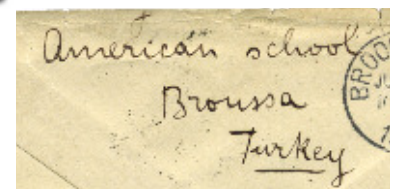 American school
Broussa
Turkey
BROO